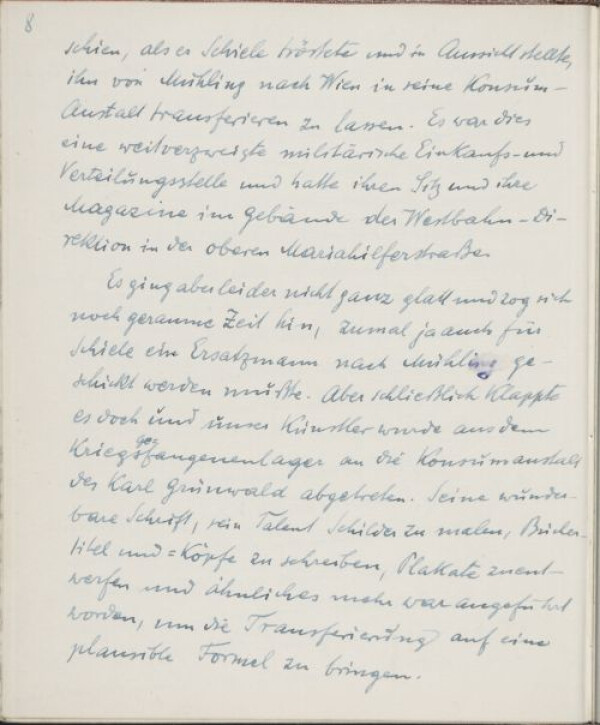 8
schien, als er Schiele tröstete und in Aussicht stellte,
ihn von Mühling nach Wien in seine Konsum-
Anstalt transferieren zu lassen. Es war dies
eine weitverzweigte militärische Einkaufs- und
Verteilungsstelle und hatte ihren Sitz und ihre
Magazine im Gebäude der Westbahn-Di-
rektion in der oberen Mariahilferstraße.
Es ging aber leider nicht ganz glatt und zog sich
noch geraume Zeit hin, zumal ja auch für
Schiele ein Ersatzmann nach Mühling ge-
schickt werden mußte. Aber schließlich klappte
es doch und unser Künstler wurde aus dem
Kriegsgefangenenlager an die Konsumanstalt
des Karl Grünwald abgetreten. Seine wunder-
bare Schrift, sein Talent Schilder zu malen, Bücher-
titel und =Köpfe zu schreiben, Plakate zu ent-
werfen und ähnliches mehr war angeführt
worden, um die Transferierung auf eine
plausible Formel zu bringen.